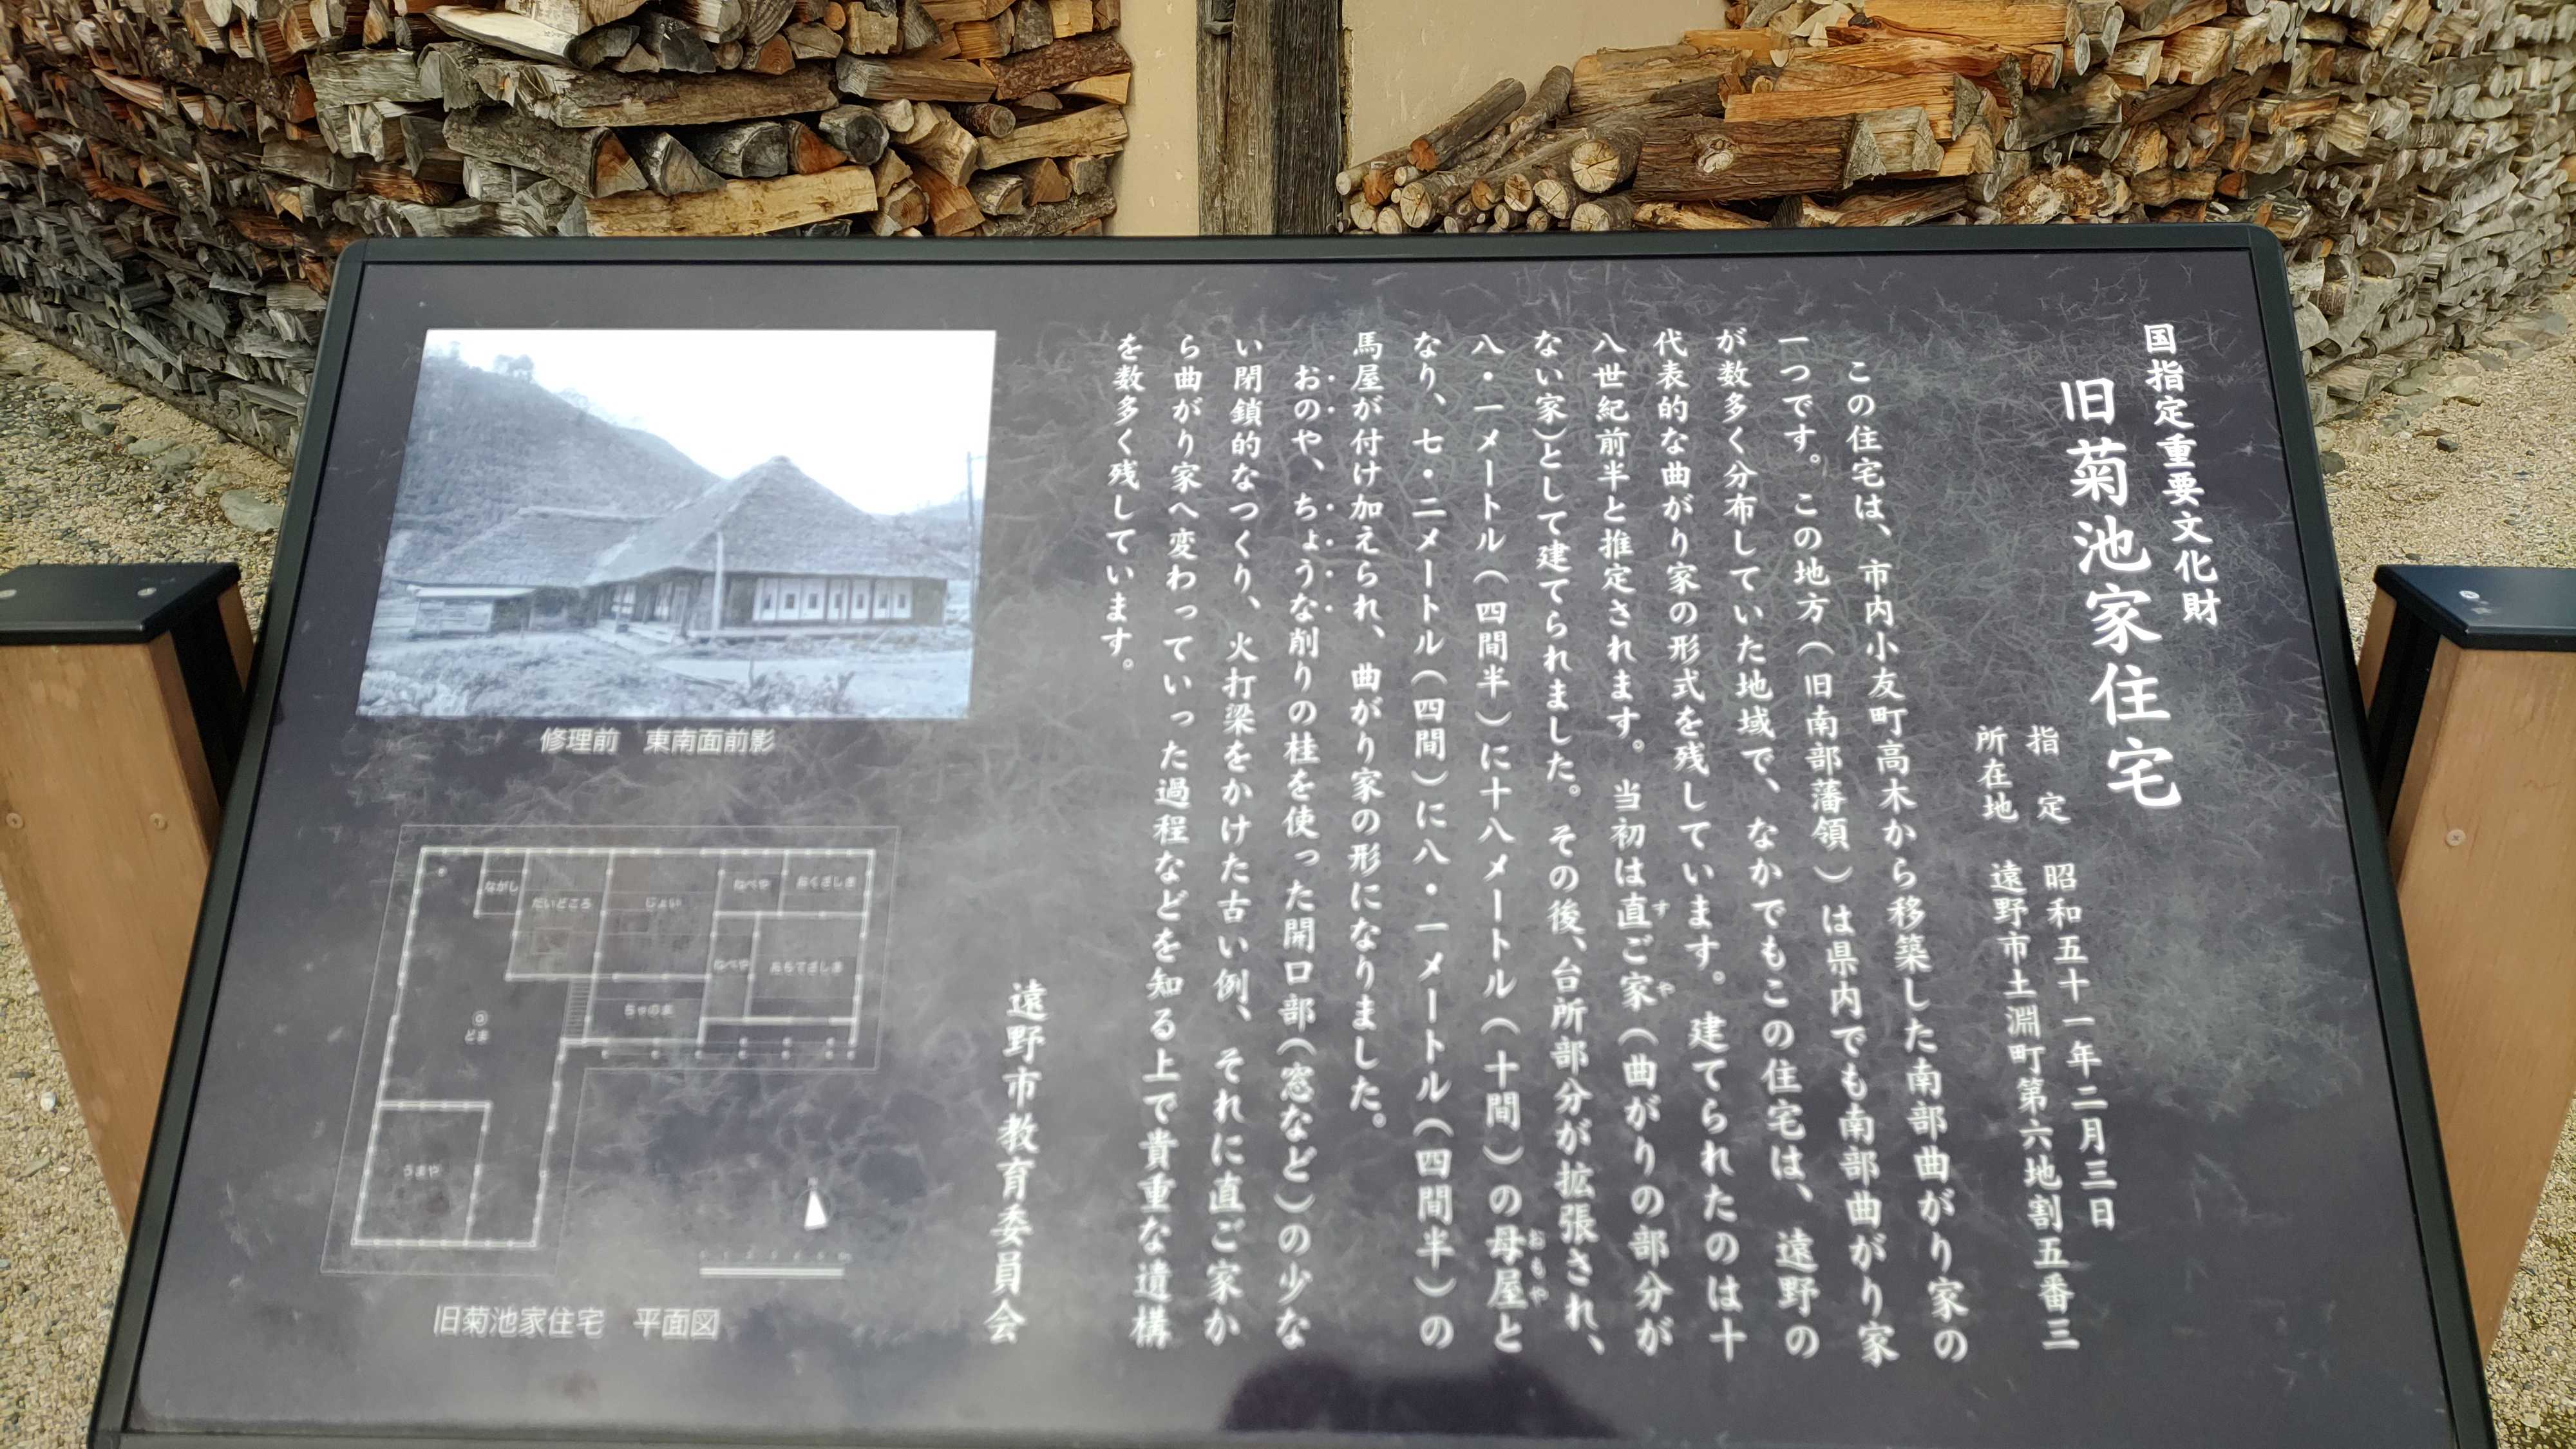 国指定重要文化財
旧菊池家住宅
指　定　昭和五十一年二月三日
所在地　遠野市土淵町第六地割五番三
この住宅は、市内小友町高木から移築した南部曲がり家の
一つです。この地方（旧南部藩領）は県内でも南部曲がり家
が数多く分布していた地域で、なかでもこの住宅は、遠野の
代表的な曲がり家の形式を残しています。建てられたのは十
八世紀前半と推定されます。当初は直ご家（曲がりの部分が
すや
ない家）として建てられました。その後、台所部分が拡張され、
八・一メートル（四間半）に十八メートル（十間）の母屋と
おもや
なり、七・二メートル（四間）に八・一メートル（四間半）の
馬屋が付け加えられ、曲がり家の形になりました。
おのや、ちょうな削りの柱を使った開口部（窓など）の少な
い閉鎖的なつくり、火打梁をかけた古い例、それに直ご家か
ら曲がり家へ変わっていった過程などを知る上で貴重な遺構
を数多く残しています。
遠野市教育委員会
修理前　東南面前影
ながし
だいどころ
じょい
ねべや
おくざしき
ねべや
おもてざしき
ちゃのま
どま
うまや
旧菊池家住宅　平面図